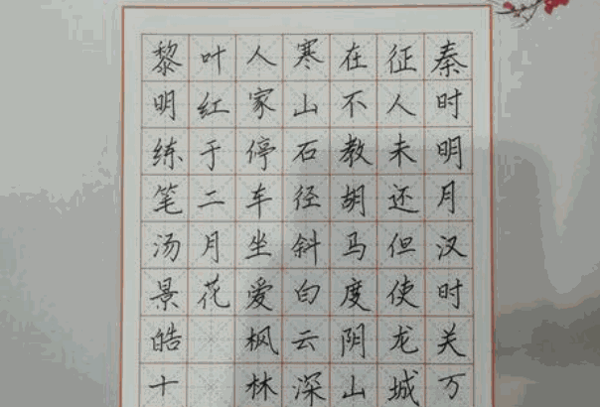 秦时明月汉时关万
征人未还但使龙城
在不教胡马度阴山
寒山石径斜白云深
人家停车坐爱枫林
叶红于二月花
黎明练笔汤景皓十